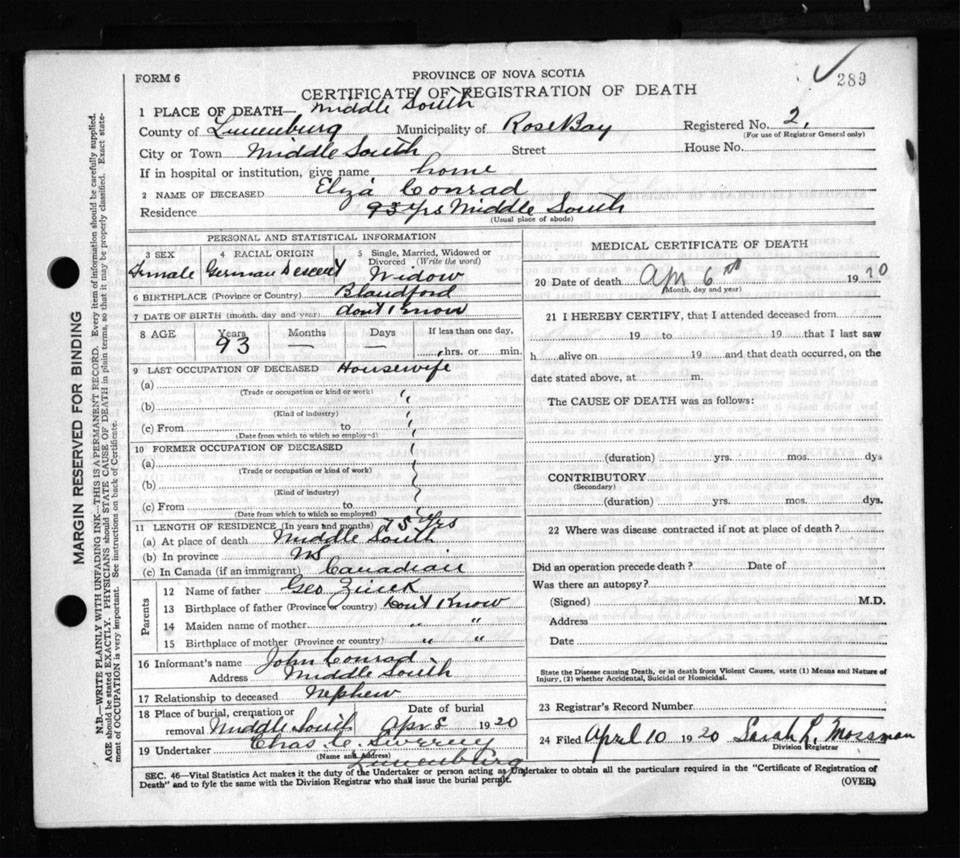 FORM 6
PROVINCE OF NOVA SCOTIA
289
CERTIFICATE OF REGISTRATION OF DEATH
1 PLACE OF DEATH— Middle South
County of Lunenburg Municipality of Rose Bay Registered No. 2,
(For use of Registrar General only)
City or Town Middle South Street House No.
If in hospital or institution, give name home
2 NAME OF DECEASED Elza Conrad
Residence 93 yrs Middle South
(Usual place of abode)
PERSONAL AND STATISTICAL INFORMATION
3 SEX 4 RACIAL ORIGIN 5 Single, Married, Widowed or Divorced (Write the word)
Female German Descent Widow
6 BIRTHPLACE (Province or Country) Blandford
7 DATE OF BIRTH (month, day and year) dont know
8 AGE Years Months Days If less than one day,
93 — — hrs. or min.
9 LAST OCCUPATION OF DECEASED Housewife
(a)
(Trade or occupation or kind or work)
(b)
(Kind of industry)
(c) From to
(Date from which to which so employed)
10 FORMER OCCUPATION OF DECEASED
(a)
(Trade or occupation or kind or work)
(b)
(Kind of industry)
(c) From to
(Date from which to which so employed)
11 LENGTH OF RESIDENCE (In years and months) 75 yrs
(a) At place of death Middle South
(b) In province NS
(c) In Canada (if an immigrant) Canadian
Parents
12 Name of father Geo Zinck
13 Birthplace of father (Province or country) Dont Know
14 Maiden name of mother " "
15 Birthplace of mother (Province or country) " "
16 Informant's name John Conrad
Address Middle South
17 Relationship to deceased Nephew
18 Place of burial, cremation or removal Middle South Date of burial Apr 8 1920
19 Undertaker Chas C. Sweeney
(Name and address)
Lunenburg
MEDICAL CERTIFICATE OF DEATH
20 Date of death Apr 6th 1920
(Month, day and year)
21 I HEREBY CERTIFY, that I attended deceased from
19 to 19 that I last saw
h alive on 19 and that death occurred, on the
date stated above, at m.
The CAUSE OF DEATH was as follows:
(duration) yrs. mos. dys
CONTRIBUTORY
(Secondary)
(duration) yrs. mos. dys.
22 Where was disease contracted if not at place of death?
Did an operation precede death? Date of
Was there an autopsy?
(Signed) M.D.
Address
Date
State the Disease causing Death, or in death from Violent Causes, state (1) Means and Nature of
Injury, (2) whether Accidental, Suicidal or Homicidal.
23 Registrar's Record Number
24 Filed April 10 1920 Sarah L. Mossman
Division Registrar
SEC. 46—Vital Statistics Act makes it the duty of the Undertaker or person acting as Undertaker to obtain all the particulars required in the "Certificate of Registration of
Death" and to fyle the same with the Division Registrar who shall issue the burial permit. (OVER)
MARGIN RESERVED FOR BINDING
N.B.—WRITE PLAINLY WITH UNFADING INK—THIS IS A PERMANENT RECORD. Every item of information should be carefully supplied.
AGE should be stated EXACTLY. PHYSICIANS should STATE CAUSE OF DEATH in plain terms, so that it may be properly classified. Exact state-
ment of OCCUPATION is very important. See instructions on back of Certificate.